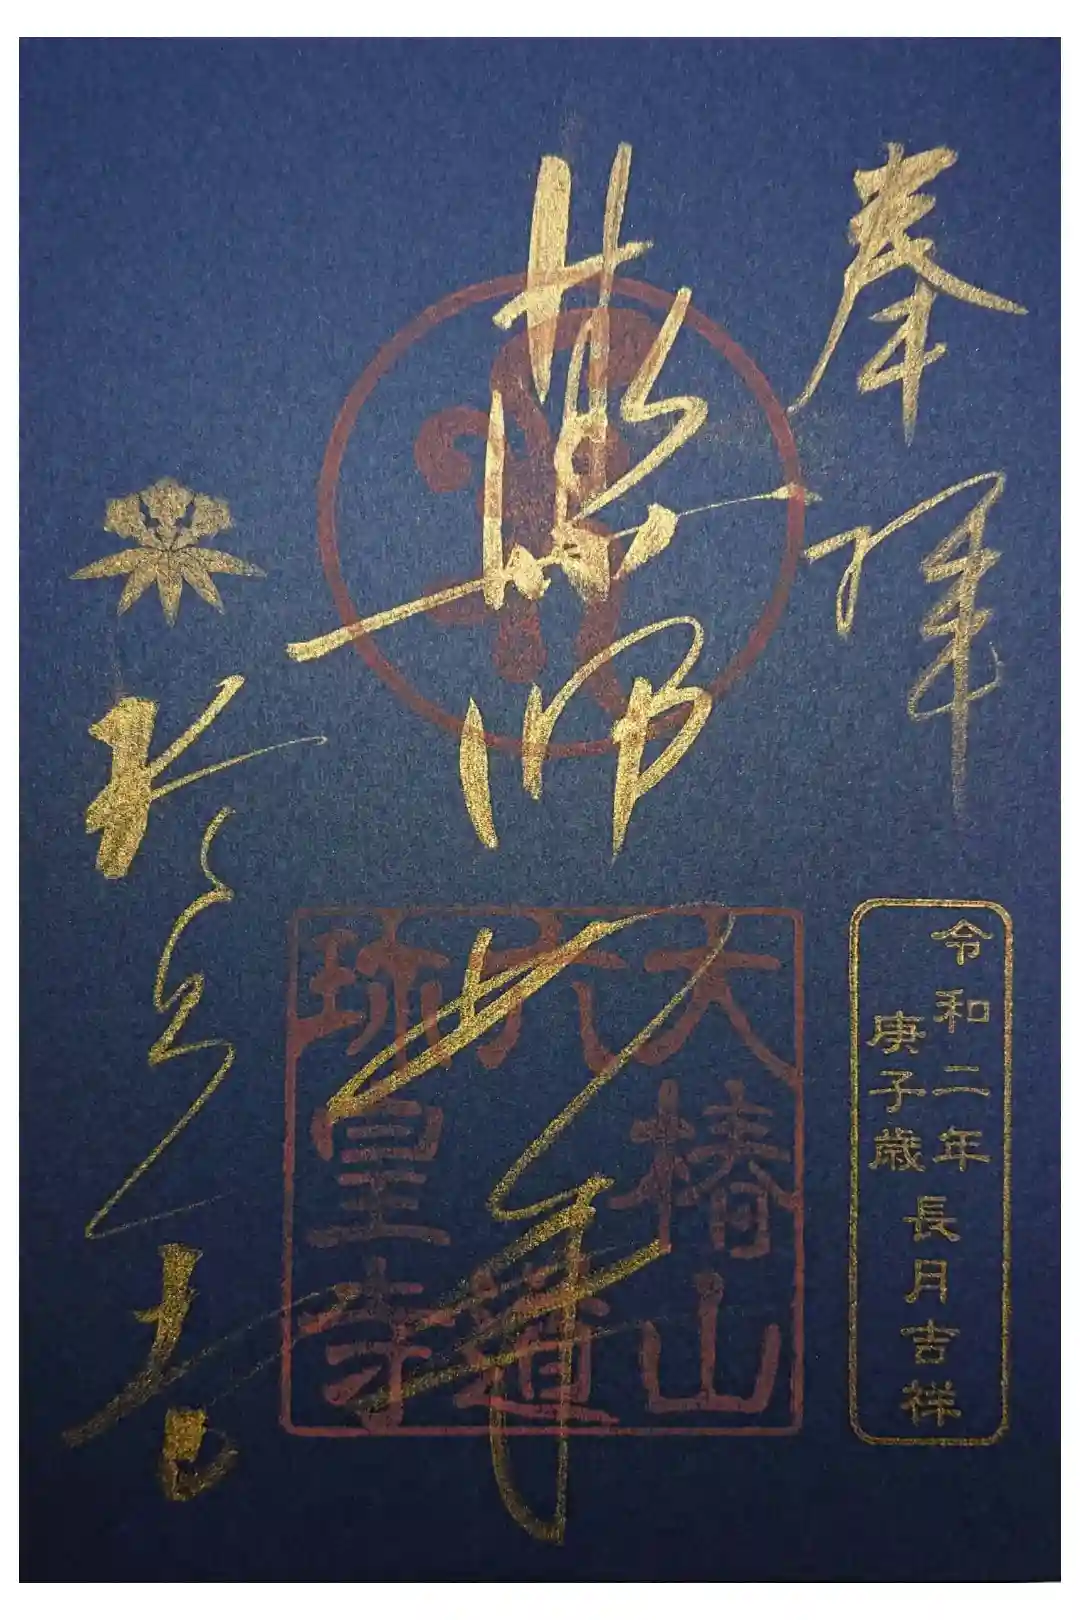 奉拝
令和二年
庚子歳
長月吉祥
薬師如来
大椿山
六道
珎皇寺